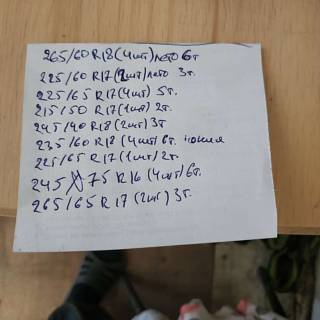 265/60 R18 (4шт) лето 6т
225/60 R17 (2шт) лето 3т.
225/65 R17 (4шт) 5т.
215/50 R17 (1шт) 2т.
245/40 R18 (2шт) 3т
235/60 R18 (4шт) 6т.
225/65 R17 (1шт) 2т.
245/75 R16 (4шт) 6т.
265/65 R17 (2шт) 3т.